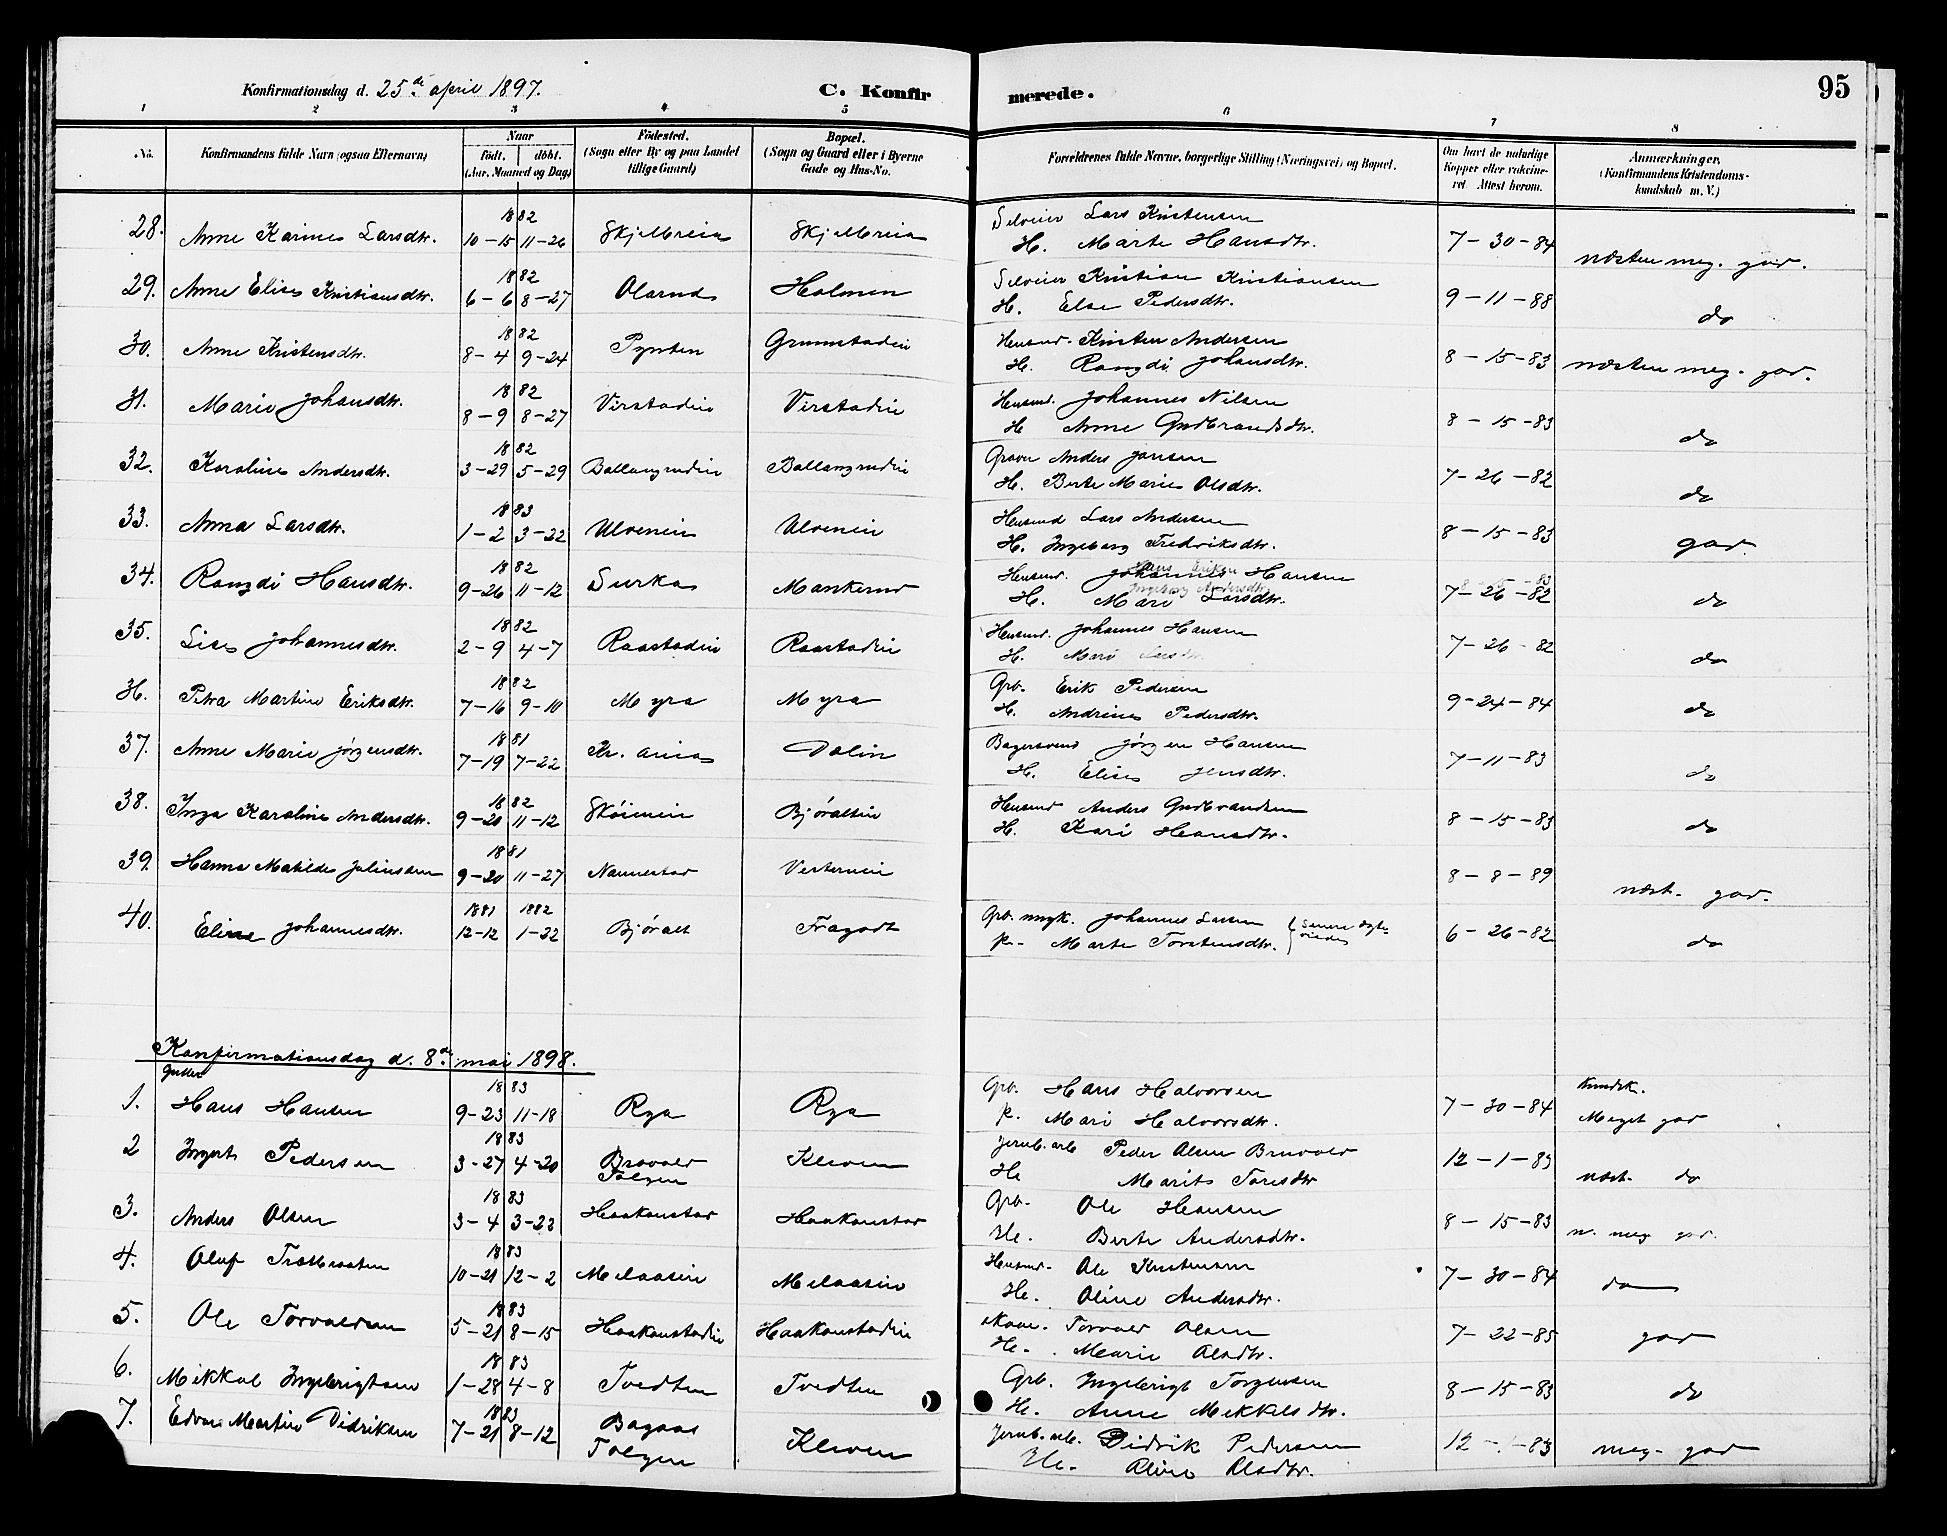 Konfirmationsdag d. 25de april 1897.
C. Konfirmerede.
95
1 2 3 4 5 6 7 8
No.
Konfirmandens fulde Navn (ogsaa Efternavn)
Naar
født. døbt.
(Aar, Maaned og Dag)
Fødested.
(Sogn eller By og paa Landet tillige Gaard)
Bopæl.
(Sogn og Gaard eller i Byerne Gade og Hus-No.
Forældrenes fulde Navne, borgerlige Stilling (Næringsvei) og Bopæl.
Om havt de naturlige Kopper eller vakcineret. Attest herom.
Anmærkninger,
(Konfirmandens Kristendomskundskab m. V.)
28. Anne Karine Larsdtr. 1882 10-15 11-26 Skjelbreia Skjelbreia Selveier Lars Kristensen 7-30-84 næsten meg. god.
H. Marte Hansdtr.
29. Anne Elise Kristiansdtr. 1882 6-6 8-27 Olerud Holmen Selveier Kristian Kristiansen 9-11-88 do
H. Else Pedersdtr.
30. Anne Kristensdtr. 1882 8-4 9-24 Pynten Grimstadie Husmd. Kristen Andersen 8-15-83 næsten meg. god.
H. Rangdi Johansdtr.
31. Marie Johansdtr. 1882 8-9 8-27 Verstadie Verstadie Husmd. Johannes Nilsen 8-15-83 do
H Anne Gudbrandsdtr.
32. Karoline Andersdtr. 1882 3-29 5-29 Ballangrudie Ballangrudie Graver Anders Jansen 7-26-82 do
H. Berte Marie Olsdtr.
33. Anna Larsdtr. 1883 1-2 3-22 Ulvenein Ulvenein Husmd Lars Andersen 8-15-83 god.
H. Ingeborg Fredriksdtr.
34. Rangdi Hansdtr. 1882 9-26 11-12 Surka Mankerud Husmd. Johannes Hansen 7-26-82 do
H. Mari Larsdtr.
35. Lise Johannesdtr. 1882 2-9 4-7 Raastadie Raastadie Husmd. Johannes Hansen 7-26-82 do
H. Mari Larsdtr.
36. Petra Martine Eriksdtr. 1882 7-16 9-10 Myra Myra Grb. Erik Pedersen 9-24-84 do
H. Andrine Pedersdtr.
37. Anne Marie Jørgensdtr. 1881 7-19 7-22 Kr.ania Dalin Bagersvend Jørgen Hansen 7-11-83 do
H. Elise Jensdtr.
38. Inga Karoline Andersdtr. 1882 9-20 11-12 Skøien Bjøraltin Husmd Anders Gudbrandsen 8-15-83 do
H. Kari Hansdtr.
39. Hanna Matilde Juliusdtr 1881 9-20 11-27 Nannestad Vesternein 8-8-89 næst. god.
40. Eline Johannesdtr. 1881 12-12 1882 1-22 Bjøralt Fragodt Grb. ungk. Johannes Larsen 6-26-82 do
p. Marte Torstensdtr. (senere ægteviede
Konfirmationsdag d. 8de mai 1898.
Gutter
1. Hans Hansen 1883 9-23 11-18 Rya Rya Grb. Hans Halvorsen 7-30-84 Kundsk. Meget god
p. Mari Halvorsdtr.
2 Ingert Pedersen 1883 3-27 4-20 Bruvold Tolgen Kleven Jernb. arb Peder Olsen Bruvold 12-1-83 næst. do
He Marit Toresdtr
3. Anders Olsen 1883 3-4 3-22 Haakonstad Haakonstad Grb. Ole Hansen 8-15-83 n. meg god.
He. Berte Andersdtr.
4. Oluf 1883 10-21 12-2 Melaasin Melaasin Husmd. Ole Kristensen 7-30-84 do
He. Oline Andersdtr.
5. Ole Torvaldsen 1883 5-21 8-15 Haakonstadie Haakonstadie Torvald Olsen 7-22-85 god
He. Marie Olsdtr.
6. Mikkal Ingebrigtsen 1883 1-28 4-8 Tvedten Tvedten Grb. Ingebrigt Torgersen 8-15-83 do
H. Anne Mekkelsdtr.
7. Edvard Martin Didriksen 1883 7-21 8-12 Bagaas Tolgen Kleven Jernb. arb. Didrik Pedersen 12-1-83 meg. god
He. Oline Olsdtr.